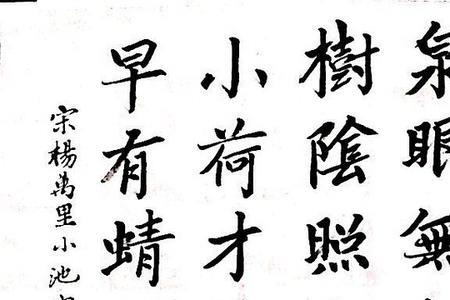 泉眼無
樹陰照
小荷才
早有蜻
宋楊萬里小池